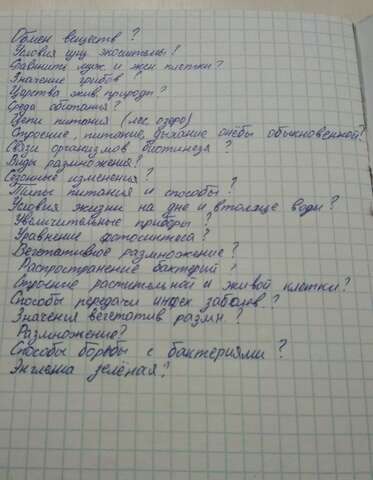 Обмен веществ?
Условия сущ. экосистемы!
Сравнить муж и жен клетки?
Значение грибов?
Царства жив. природы?
Среда обитания?
Цепи питания (лес, озеро)
Строение, питание, дыхание амёбы обыкновенной!
Связи организмов
Виды размножения!
Сезонные изменения?
Типы питания и способы?
Условия жизни на дне и в толще воды?
Увеличительные приборы?
Уравнение фотосинтеза?
Вегетативное размножение?
Распространение бактерий?
Строение растительной и живой клетки?
Способы передачи инфек заболев?
Значения вегетотив разм.?
Размножение?
Способы борьбы с бактериями?
Эвглена зелёная?